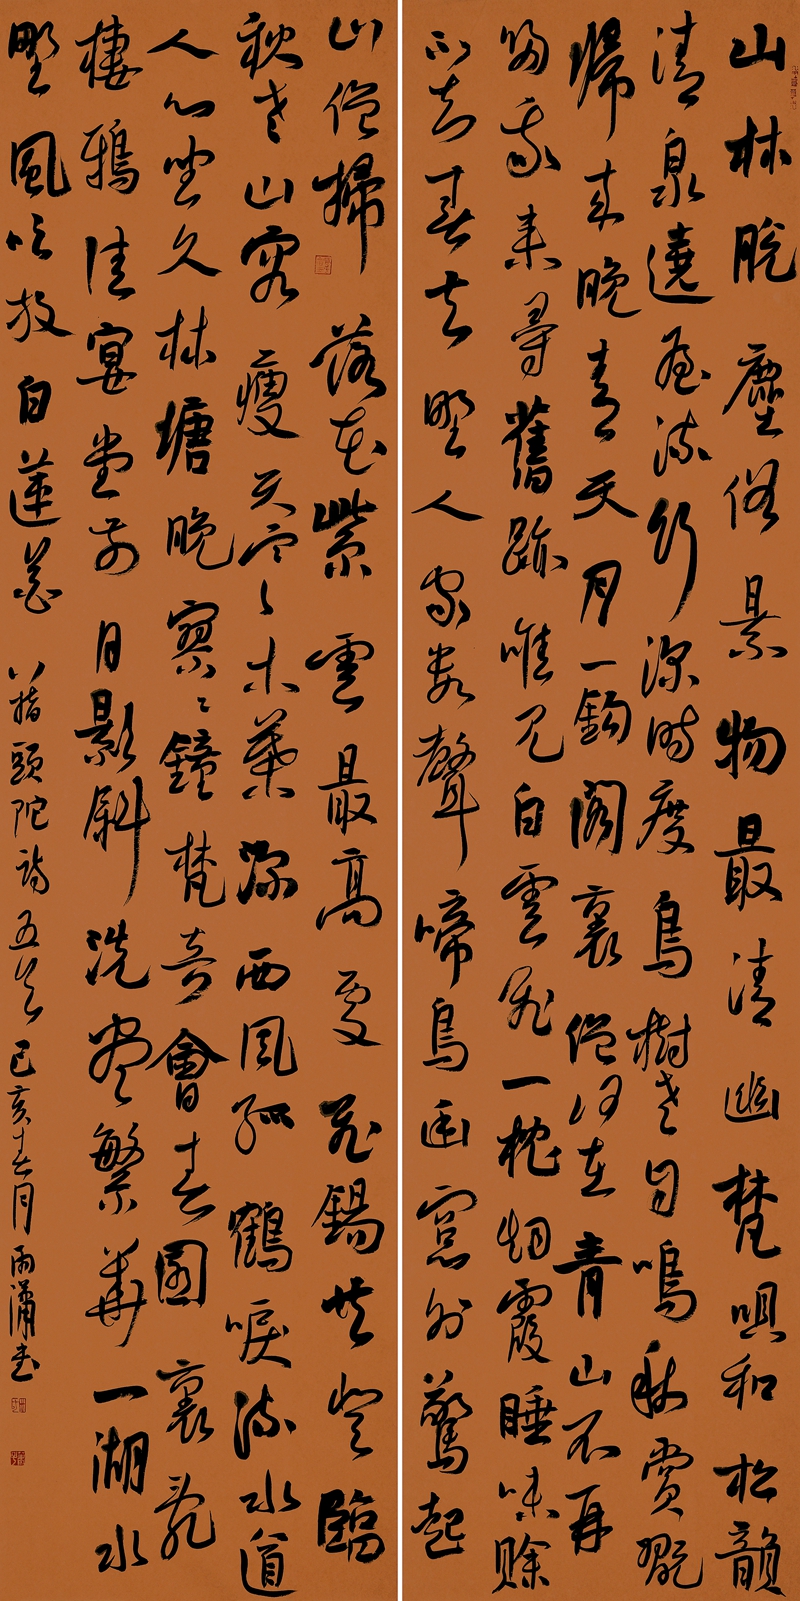 山林脫塵俗景物最清幽梵唄和松韻
清泉遶屋流竹深時度鳥樹老自鳴秋賞翫
歸來晚青天月一鉤閣裏僧何在青山不再
歸我來尋舊跡唯見白雲飛一枕烟霞睡味賒
不知春去野人家數聲啼鳥幽窗外驚起
山僧掃落花紫雲最高處飛錫共登臨
秋老山容瘦天寒木葉深西風孤鶴唳流水道
人心坐久林塘晚寥寥鐘梵音會春園裏亂
棲鴉佳宴堂前月影斜洗盡繁華一湖水
野風吹放白蓮花 八指頭陀詩五首 己亥春月 雨瀟書